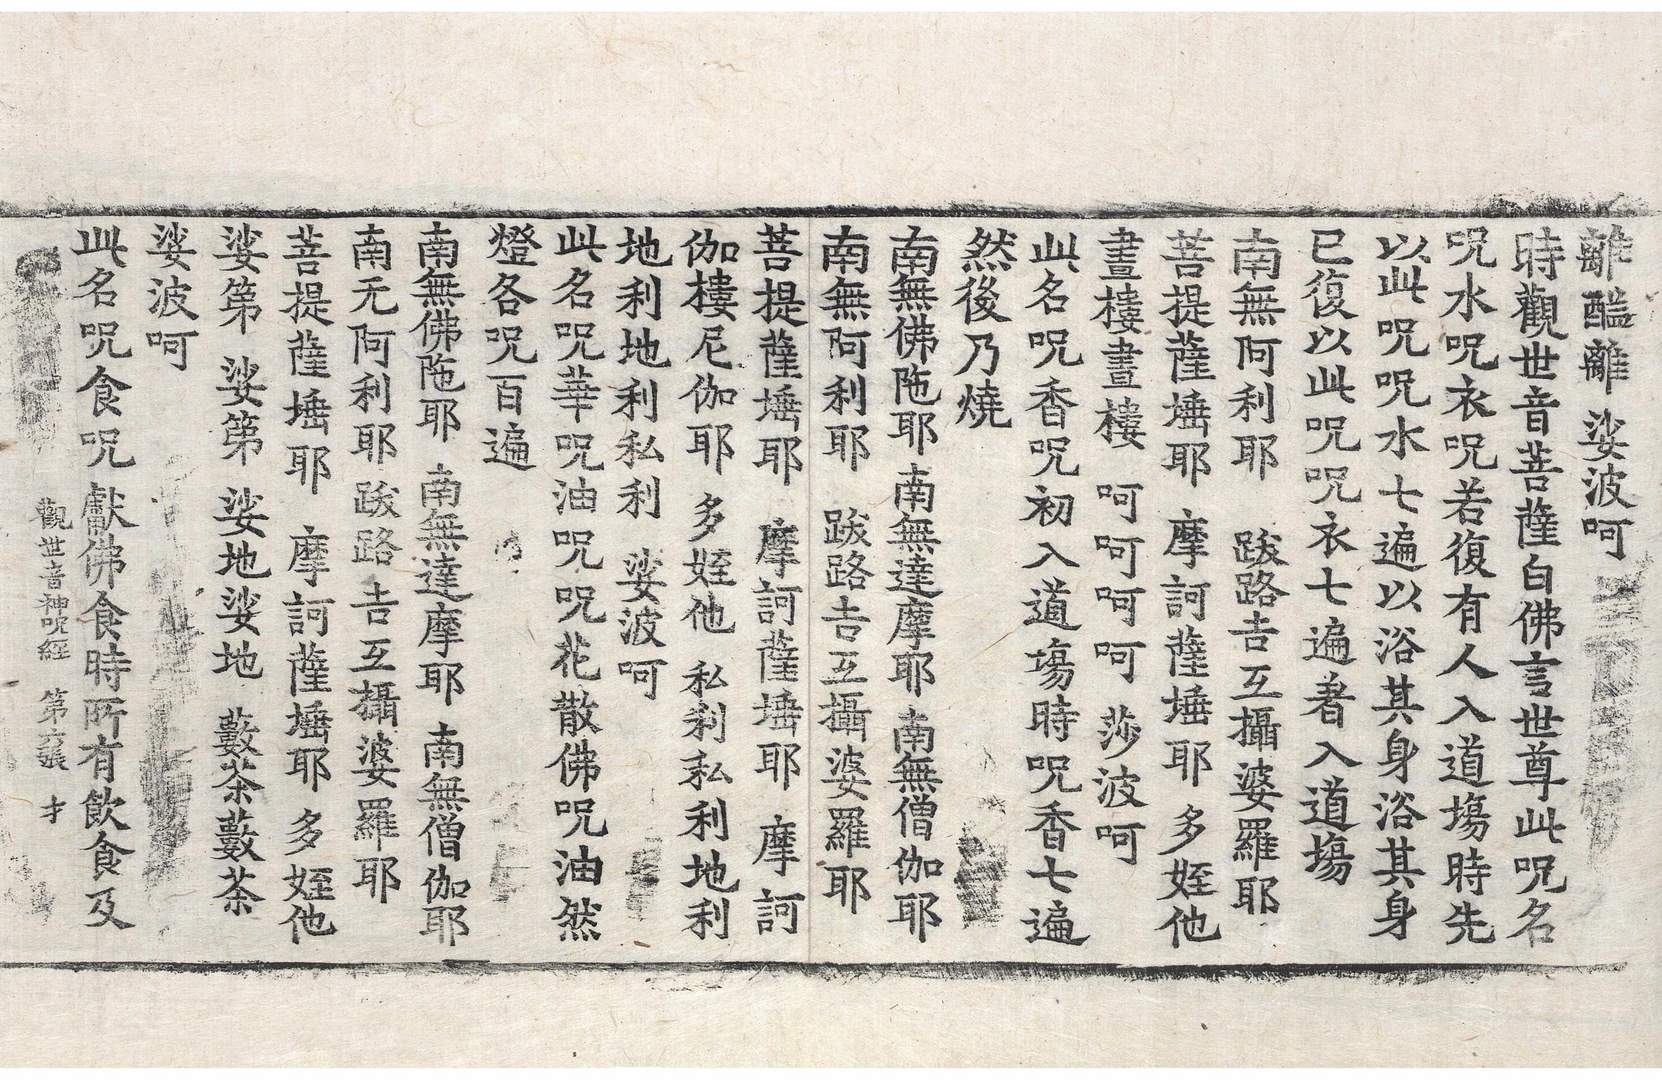 離醯離 娑波呵
時觀世音菩薩白佛言世尊此呪名
呪水呪衣呪若復有人入道塲時先
以此呪呪水七遍以浴其身浴其身
已復以此呪呪衣七遍著入道塲
南無阿利耶 跋路吉互攝婆羅耶
菩提薩埵耶 摩訶薩埵耶 多姪他
晝樓晝樓 呵呵呵呵 莎波呵
此名呪香呪初入道塲時呪香七遍
然後乃燒
南無佛陁耶 南無達摩耶 南無僧伽耶
南無阿利耶 跋路吉互攝婆羅耶
菩提薩埵耶 摩訶薩埵耶 摩訶
伽樓尼伽耶 多姪他 私利私利地利
地利地利私利 娑波呵
此名呪華呪油呪呪花散佛呪油然
燈各呪百遍
南無佛陁耶 南無達摩耶 南無僧伽耶
南无阿利耶跋路吉互攝婆羅耶
菩提薩埵耶 摩訶薩埵耶 多姪他
娑第 娑第 娑地娑地 藪茶藪茶
娑波呵
此名呪食呪獻佛食時所有飲食及
觀世音神呪經 第六張 才